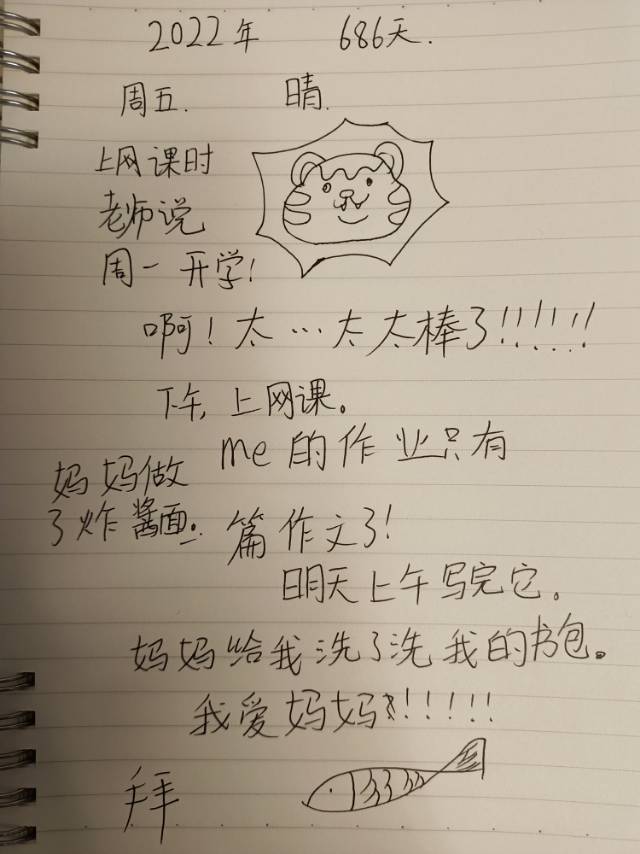 2022年 686天.
周五. 晴.
上网课时
老师说
周一开学!
啊!太…太太棒了!!!!!!
下午,上网课。
me的作业只有
妈妈做
了炸酱面。
一篇作文了!
明天上午写完它。
妈妈给我洗了洗我的书包。
我爱妈妈!!!!!
拜